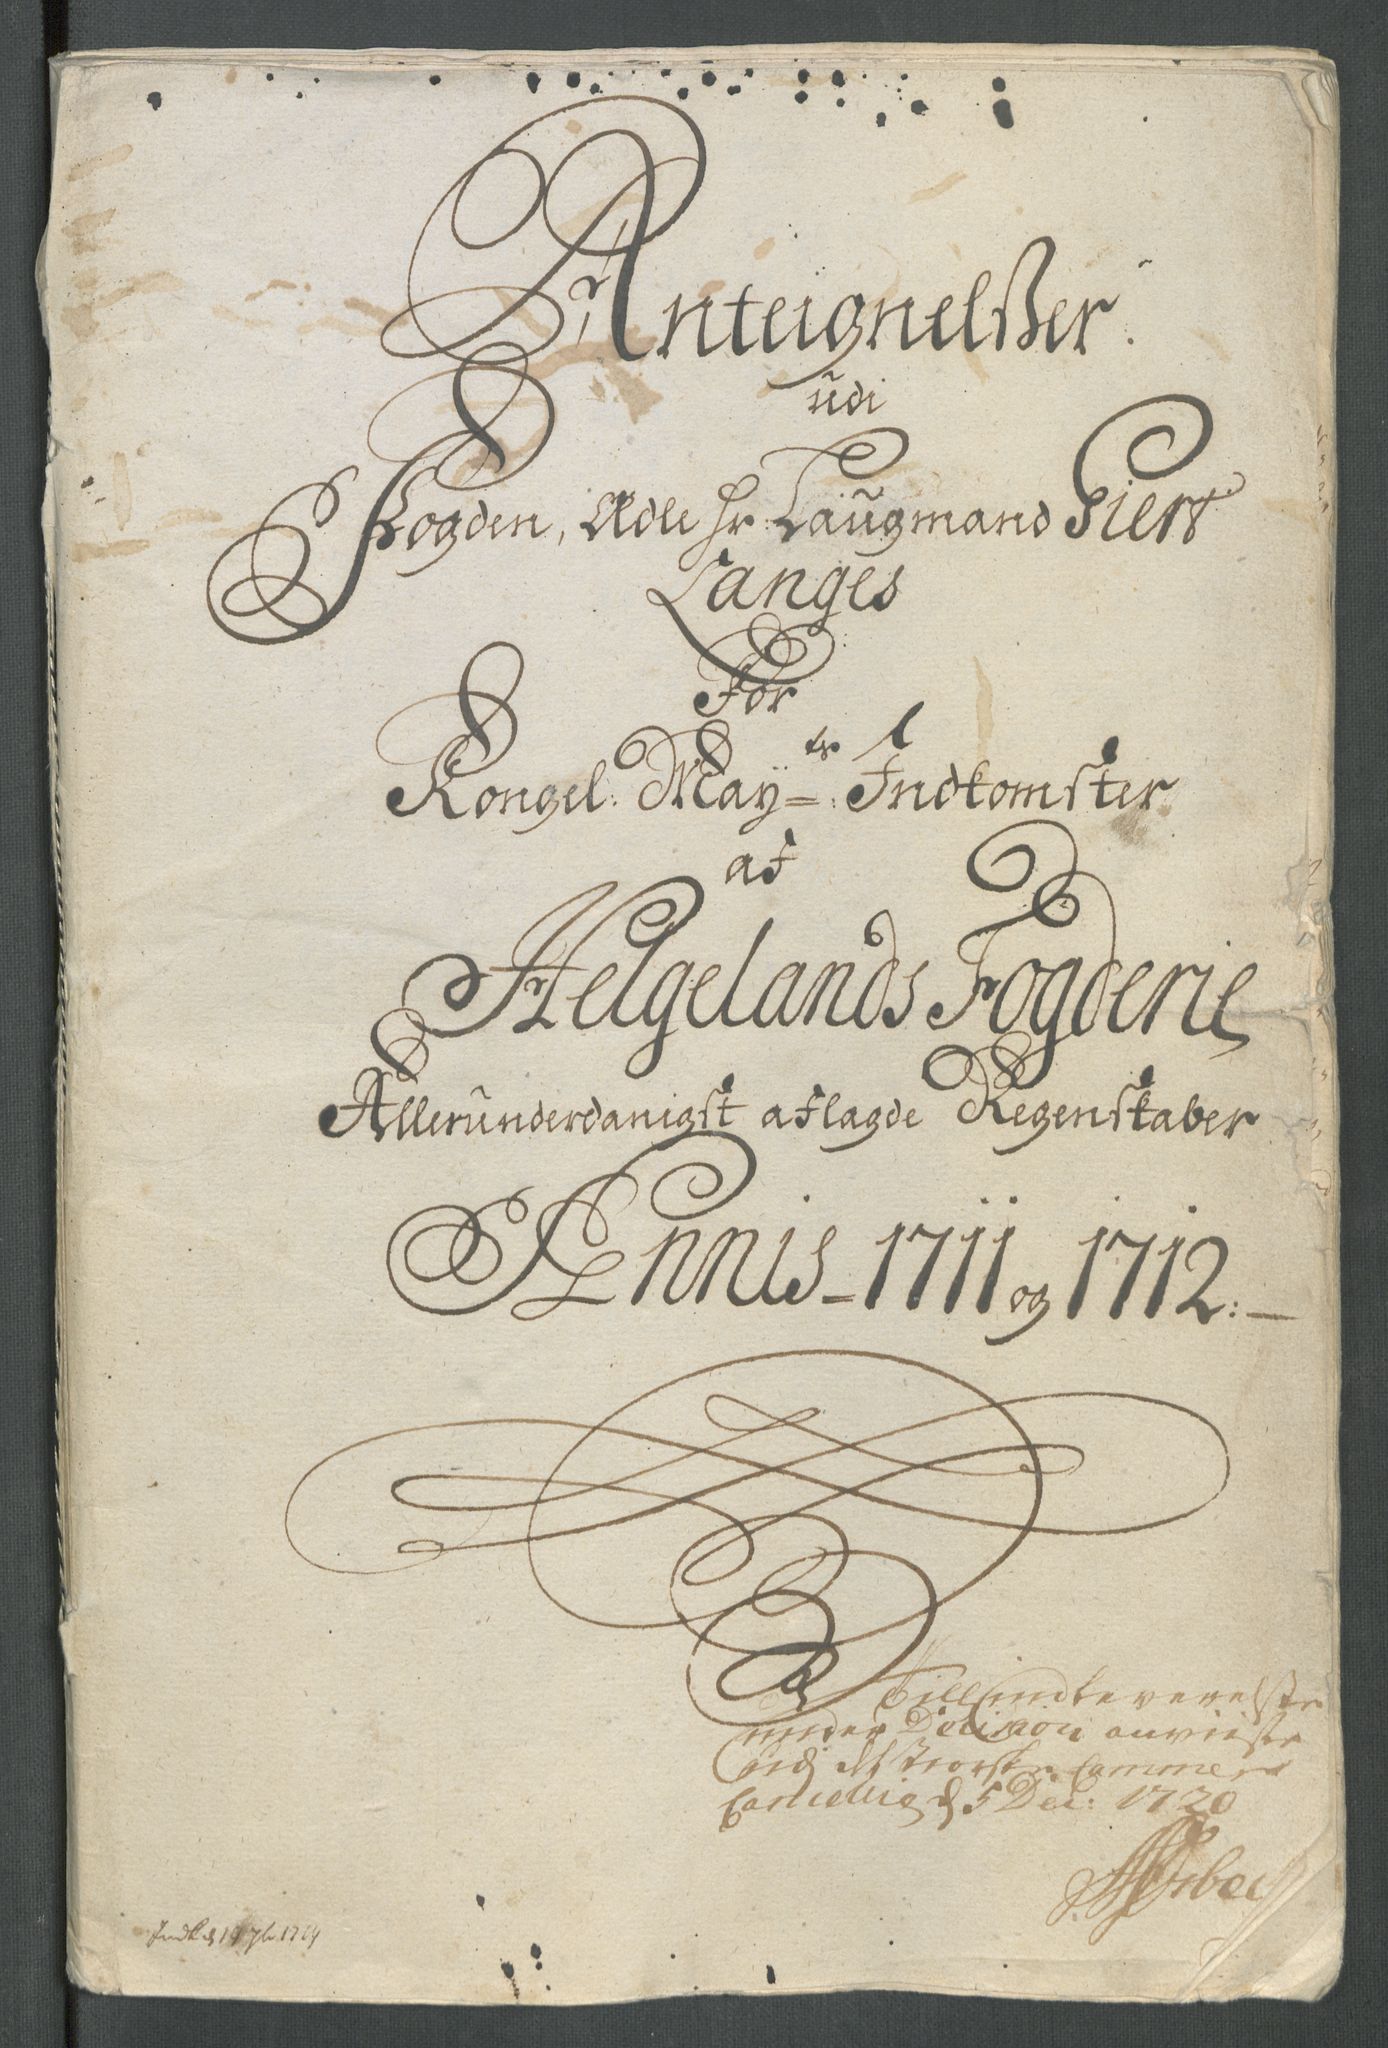 Anteignelßer
udi
Fogden, Ædle Hr: Laugmand Giert
Langes
For
Kongel: May=ts: Indkomster
af
Helgelands Fogderie
Allerunderdanigst aflagde Regenskaber
Annis_1711 og 1712:
under Decision
5 Dec: 1720
Indk d 19 7br 1714